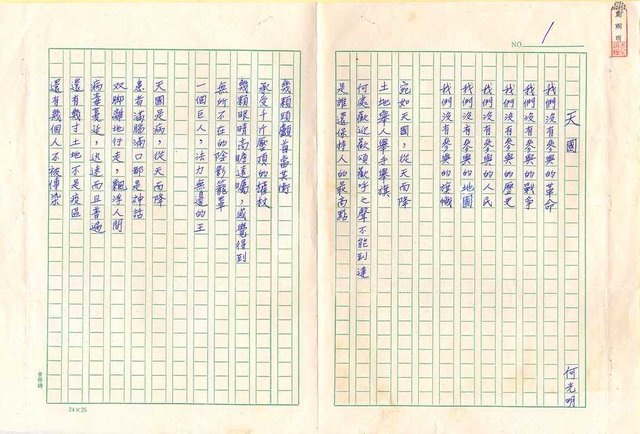 NO. 1
天國
何光明
我們沒有參與的革命
我們沒有參與的戰爭
我們沒有參與的歷史
我們沒有參與的人民
我們沒有參與的地圖
我們沒有參與的旗幟
宛如天國,從天而降
土地舉人舉手舉旗
何處歡迎歡頌歡呼之聲不能到達
是誰還保持人的最高點
幾顆頭顱首當其衝
承受千斤壓頂的權杖
幾顆眼睛高瞻遠矚,感覺得到
無所不在的陰影籠罩
一個巨人,法力無邊的王
天國是病,從天而降
患者滿腦滿口都是神話
双脚離地行走,飄浮人間
病毒蔓延,迅速而且普遍
還有幾寸土地不是疫區
還有幾個人不被傳染
24×25